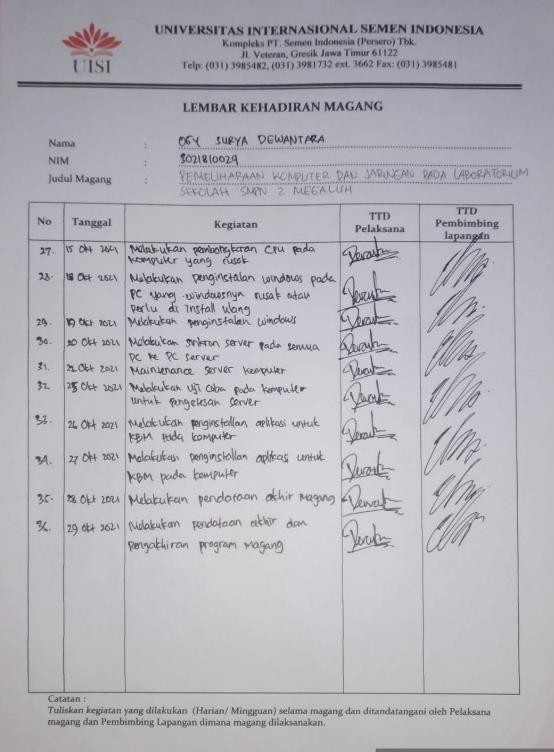 UISI
UNIVERSITAS INTERNASIONAL SEMEN INDONESIA
Kompleks PT. Semen Indonesia (Persero) Tbk.
Jl. Veteran, Gresik Jawa Timur 61122
Telp: (031) 3985482, (031) 3981732 ext. 3662 Fax: (031) 3985481
LEMBAR KEHADIRAN MAGANG
Nama : OGY SURYA DEWANTARA
NIM : 3021810029
Judul Magang : PEMELIHARAAN KOMPUTER DAN JARINGAN PADA LABORATORIUM
SEKOLAH SMPN 2 MEGALUH
No Tanggal Kegiatan TTD Pelaksana TTD Pembimbing lapangan
27. 15 Okt 2021 Melakukan pembongkaran CPU pada
komputer yang rusak
28. 18 Okt 2021 Melakukan penginstalan windows pada
PC yang windowsnya rusak atau
perlu di install ulang
29. 19 Okt 2021 Melakukan penginstalan windows
30. 20 Okt 2021 Melakukan sinkron server pada semua
PC ke PC server
31. Okt 2021 Maintenance server komputer
32. 25 Okt 2021 Melakukan Uji Coba pada komputer
untuk pengetesan server
33. 26 Okt 2021 Melakukan penginstallan aplikasi untuk
KBM pada komputer
34. 27 Okt 2021 Melakukan penginstallan aplikasi untuk
KBM pada komputer
35. 28 Okt 2021 Melakukan pendataan akhir Magang
36. 29 Okt 2021 Melakukan pendataan akhir dan
pengakhiran program Magang
Catatan :
Tuliskan kegiatan yang dilakukan (Harian/ Mingguan) selama magang dan ditandatangani oleh Pelaksana
magang dan Pembimbing Lapangan dimana magang dilaksanakan.